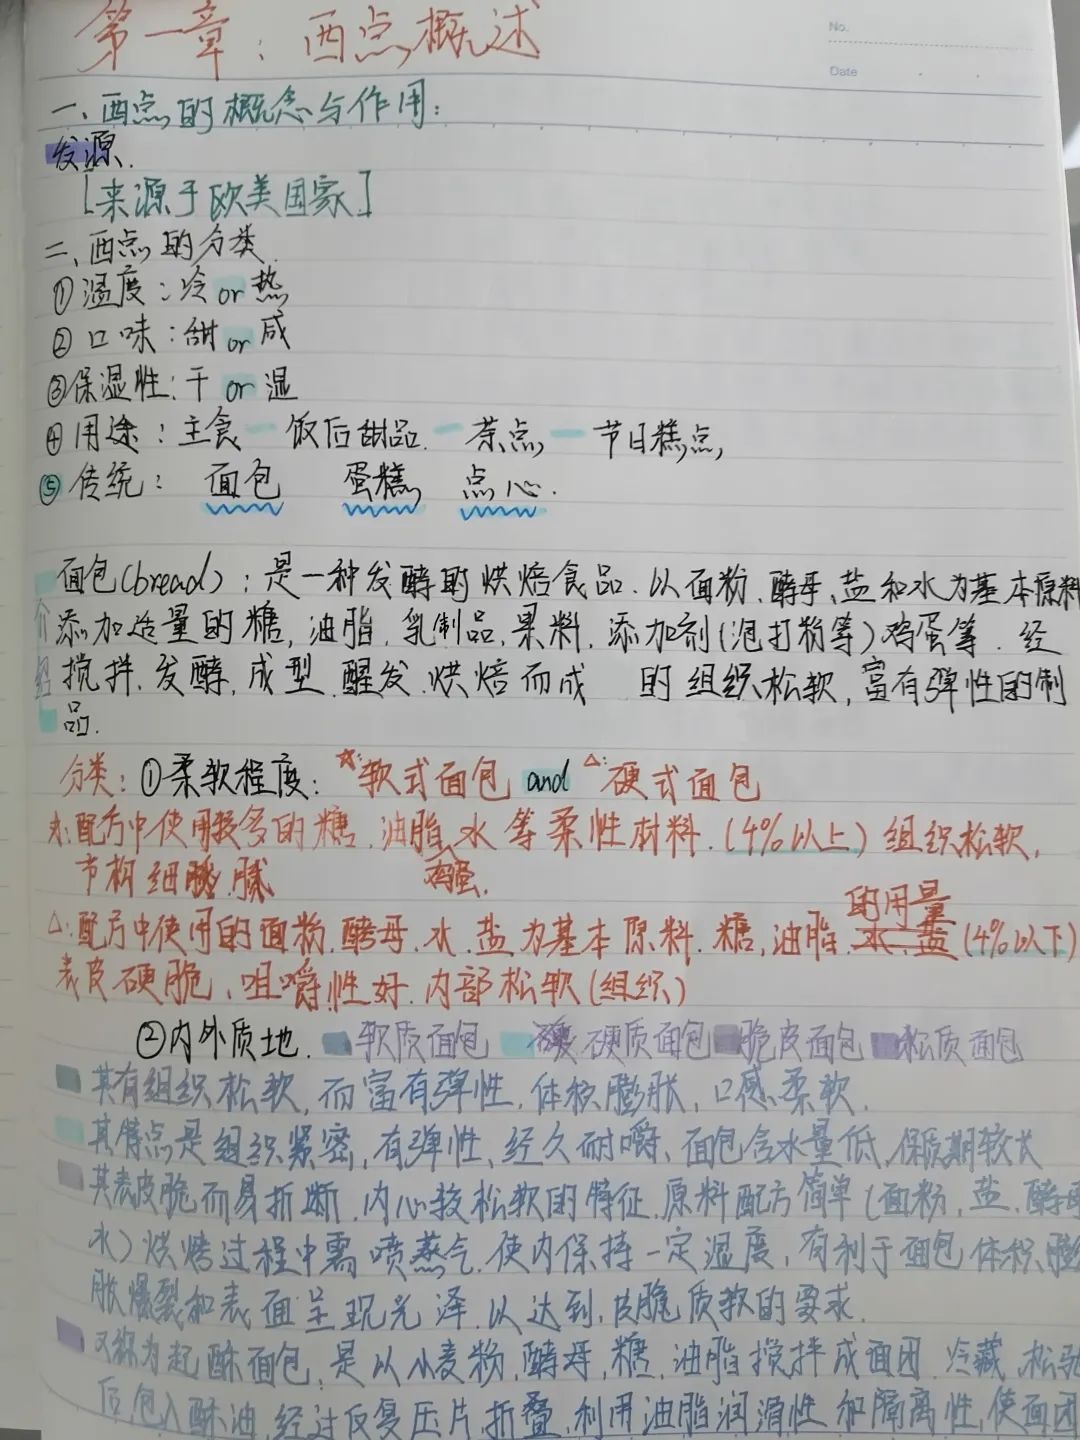 No.
Date
第一章：西点概述
一、西点的概念与作用：
发源.
[来源于欧美国家]
二、西点的分类
①温度：冷or热
②口味：甜or咸
③保湿性：干or湿
④用途：主食 — 饭后甜品 — 茶点 — 节日糕点
⑤传统： 面包 蛋糕 点心.
面包(bread)：是一种发酵的烘焙食品.以面粉.酵母、盐和水为基本原料
添加适量的糖,油脂,乳制品,果料,添加剂(泡打粉等)鸡蛋等.经
搅拌.发酵,成型.醒发.烘焙而成 的组织松软,富有弹性的制
品.
分类：①柔软程度：☆:软式面包 and △:硬式面包
☆:配方中使用较多的糖.油脂.水等柔性材料.(4%以上)组织松软,
节构细 腻 鸡蛋.
的用量
△:配方中使用的面粉.酵母.水.盐为基本原料.糖,油脂.水.盐(4%以下)
表皮硬脆、咀嚼性好.内部松软(组织)
②内外质地. 软质面包 硬质面包 脆皮面包 松质面包
其有组织松软,而富有弹性,体积膨胀,口感柔软.
其特点是组织紧密,有弹性、经久耐嚼、面包含水量低,保质期较长
其表皮脆而易折断.内心较松软的特征.原料配方简单(面粉,盐.酵母
水)烘烤过程中需喷蒸气.使内保持一定湿度,有利于面包体积膨
胀爆裂和表面呈现光泽.以达到,皮脆质软的要求.
又称为起酥面包,是以小麦粉,酵母,糖,油脂搅拌成面团.冷藏,松弛
后,包入酥油,经过反复压片折叠,利用油脂润滑性和隔离性,使面团